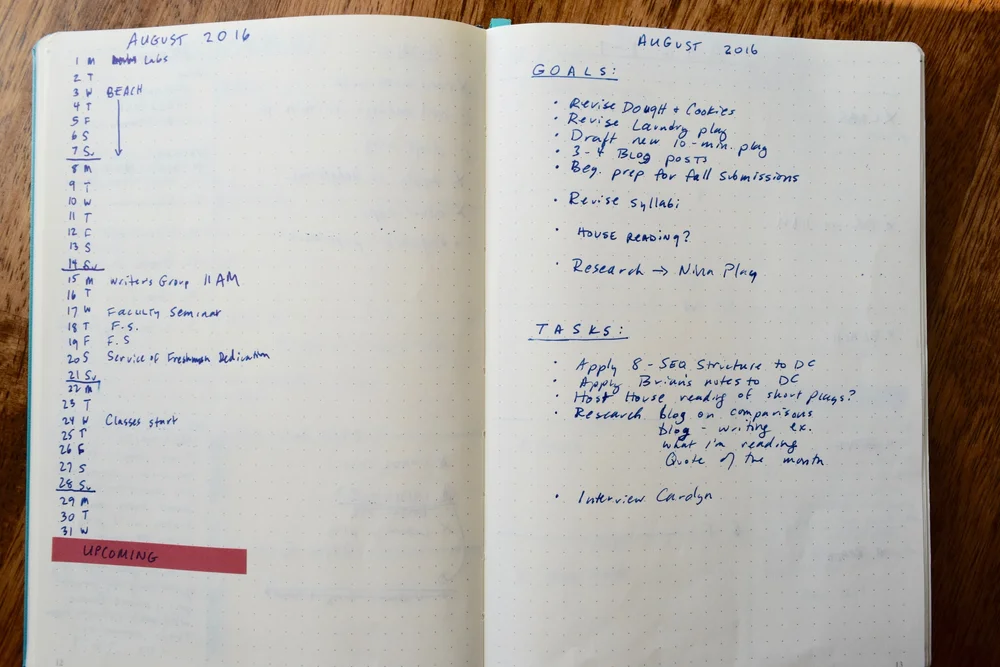 AUGUST 2016
1 M Labs
2 T
3 W BEACH
4 T
5 F
6 S
7 Su
8 M
9 T
10 W
11 T
12 F
13 S
14 Su
15 M Writer's Group 11 AM
16 T
17 W Faculty Seminar
18 T F.S.
19 F F.S
20 S Service of Freshman Dedication
21 Su
22 M
23 T
24 W Classes start
25 T
26 F
27 S
28 Su
29 M
30 T
31 W
UPCOMING
AUGUST 2016
GOALS:
• Revise Dough + Cookies
• Revise Laundry play
• Draft new 10-min. play
• 3-4 Blog posts
• Beg. prep for fall submissions
• Revise syllabi
• HOUSE READING?
• Research → Nina Play
TASKS:
• Apply 8-SEQ Structure to DC
• Apply Brian's notes to DC
• Host House reading of short plays?
• Research blog on comparisons
blog - writing ex.
what i'm reading
Quote of the month
• Interview Carolyn